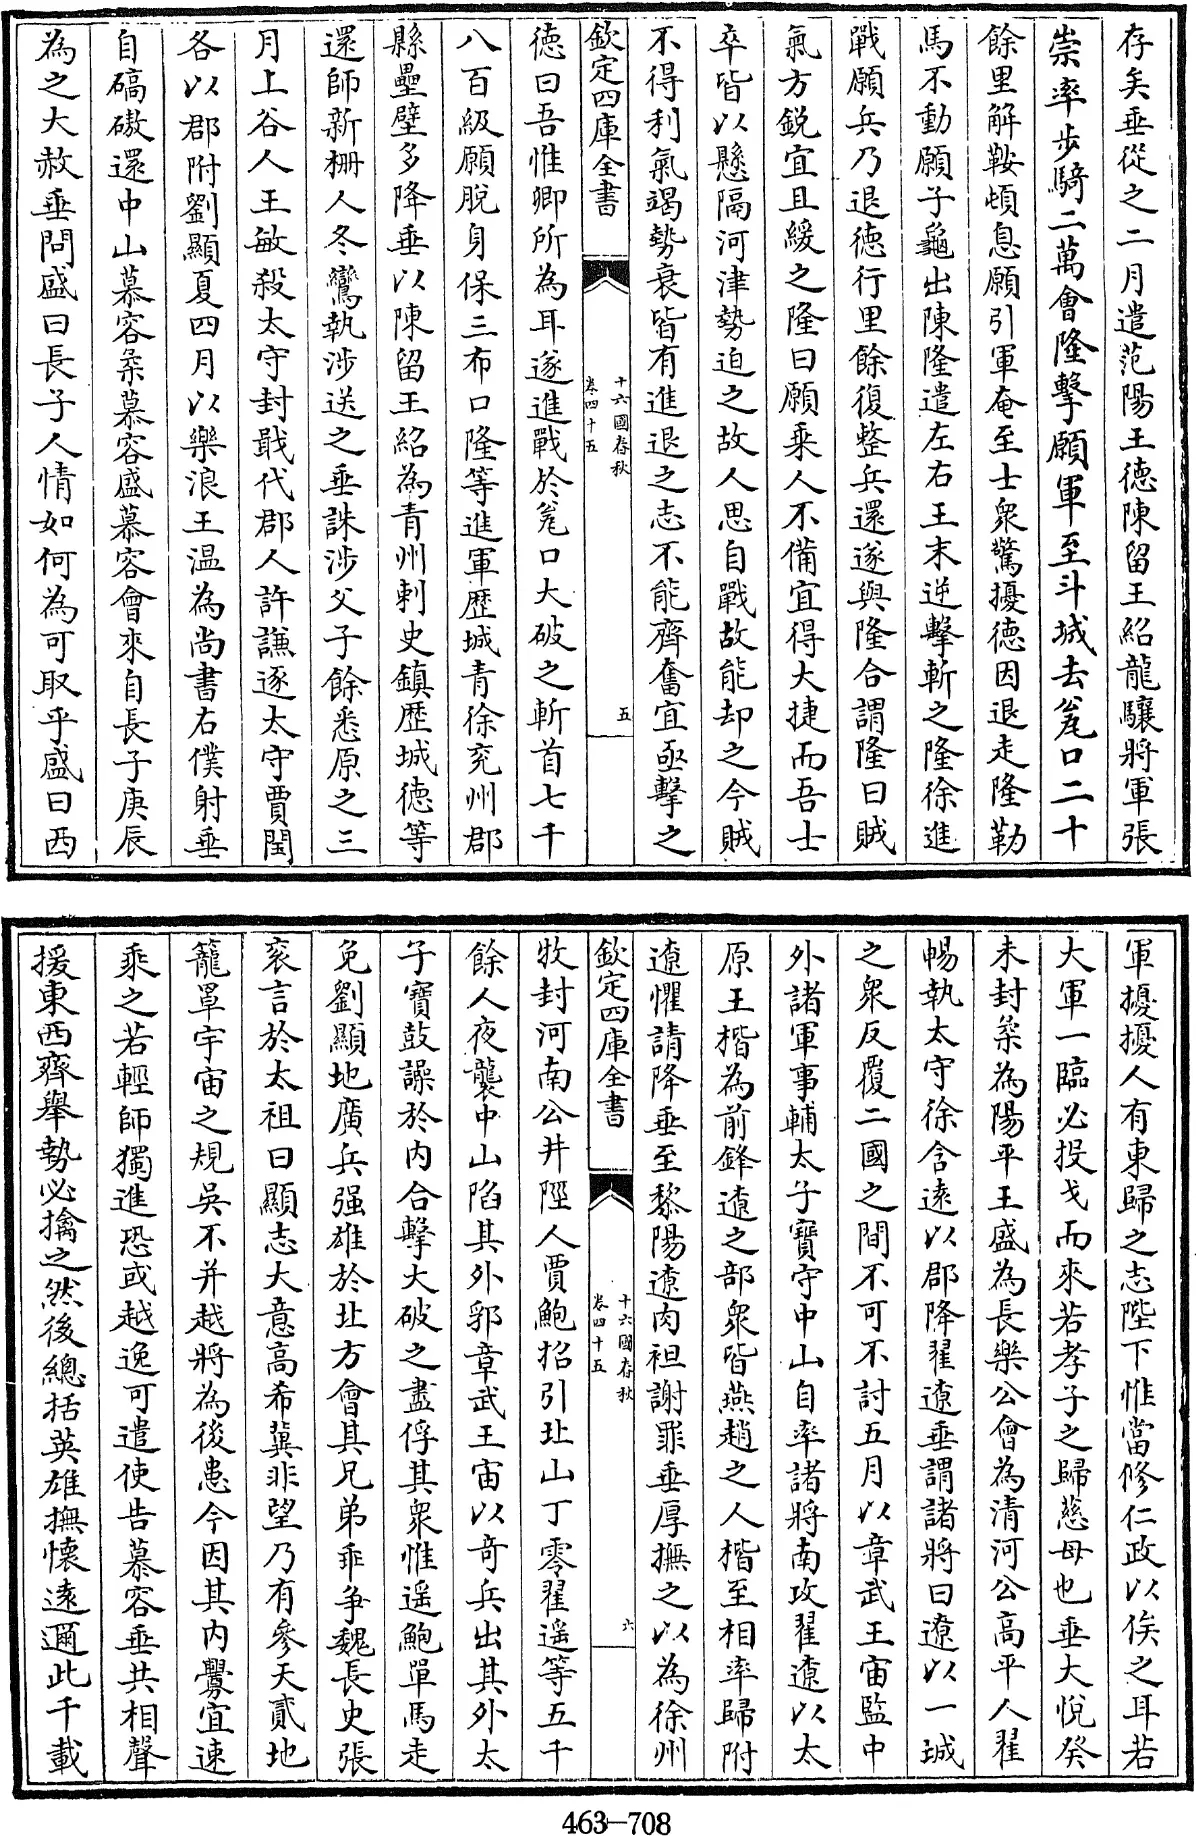 存矣垂從之二月遣范陽王德陳留王紹龍驤將軍張
崇率步騎二萬會隆擊願軍至斗城去瓮口二十
餘里解鞍頓息願引軍奄至士衆驚擾德因退走隆勒
馬不動願子龜出陳隆遣左右王末逆擊斬之隆徐進
戰願兵乃退德行里餘復整兵還遂與隆合謂隆曰賊
氣方鋭宜且緩之隆曰願乘人不備宜得大捷而吾士
卒皆以懸隔河津勢迫之故人思自戰故能却之今賊
不得利氣竭勢衰皆有進退之志不能齊奮宜亟擊之
欽定四庫全書
十六國春秋
卷四十五
五
德曰吾惟卿所為耳遂進戰於瓮口大破之斬首七千
八百級願脫身保三布口隆等進軍歷城青徐兖州郡
縣壘壁多降垂以陳留王紹為青州刺史鎮歷城德等
還師新栅人冬鸞執涉送之垂誅涉父子餘悉原之三
月上谷人王敏殺太守封戢代郡人許謙逐太守賈閏
各以郡附劉顯夏四月以樂浪王温為尚書右僕射垂
自碻磝還中山慕容柔慕容盛慕容會來自長子庚辰
為之大赦垂問盛曰長子人情如何為可取乎盛曰西
軍擾擾人有東歸之志陛下惟當修仁政以俟之耳若
大軍一臨必投戈而來若孝子之歸慈母也垂大悅癸
未封柔為陽平王盛為長樂公會為清河公高平人翟
暢執太守徐含遠以郡降翟遼垂謂諸將曰遼以一城
之衆反覆二國之間不可不討五月以章武王宙監中
外諸軍事輔太子寶守中山自率諸將南攻翟遼以太
原王楷為前鋒遼之部衆皆燕趙之人楷至相率歸附
遼懼請降垂至黎陽遼肉袒謝罪垂厚撫之以為徐州
欽定四庫全書
十六國春秋
卷四十五
六
牧封河南公井陘人賈鮑招引北山丁零翟遥等五千
餘人夜襲中山陷其外郭章武王宙以奇兵出其外太
子寶鼓譟於内合擊大破之盡俘其衆惟遥鮑單馬走
免劉顯地廣兵强雄於北方會其兄弟乖争魏長史張
衮言於太祖曰顯志大意高希冀非望乃有參天貳地
籠罩宇宙之規吳不并越將為後患今因其内釁宜速
乘之若輕師獨進恐或越逸可遣使告慕容垂共相聲
援東西齊舉勢必擒之然後總括英雄撫懷遠邇此千載
463-708